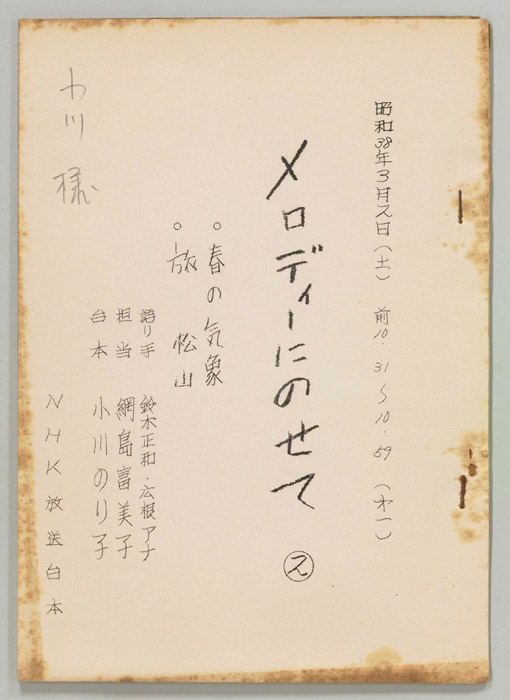 昭和38年3月2日(土) 前10.31~10.59(第一)
メロディーにのせて ②
○春の気象
○旅 松山
語り手 鈴木正和・広根アナ
担当 網島富美子
台本 小川のり子
NHK放送台本
小川様